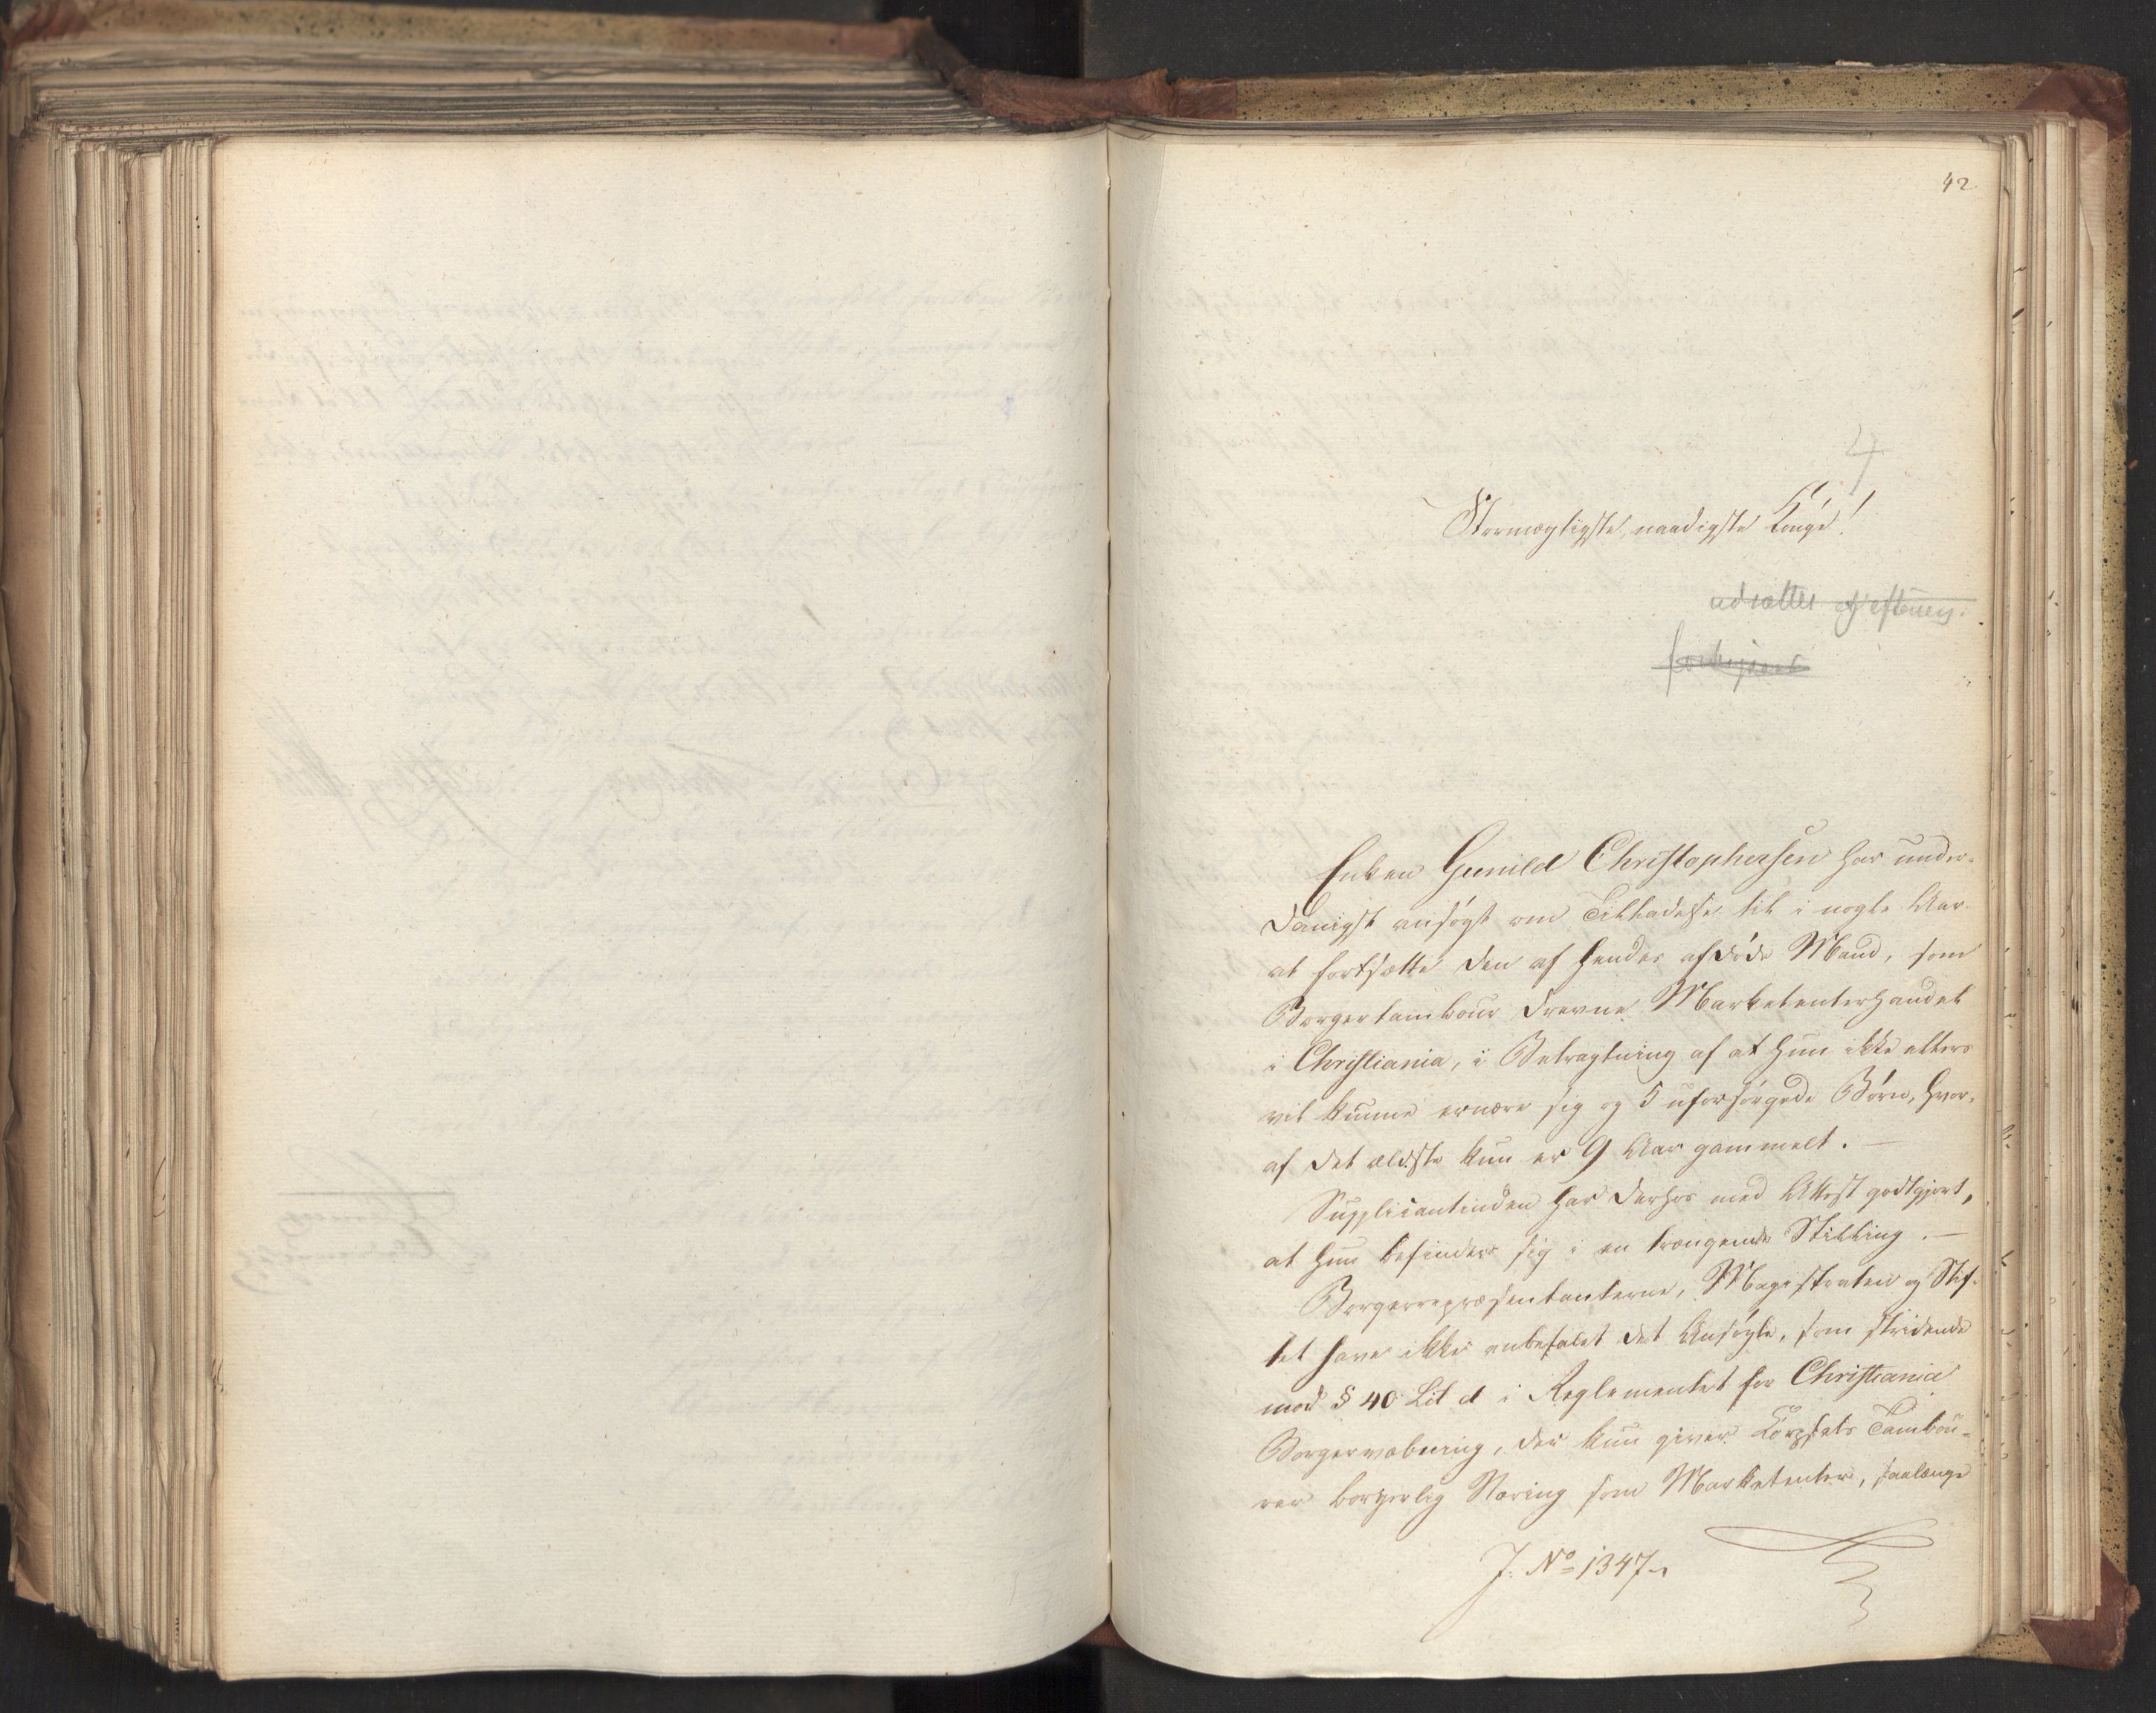 42
4
Stormægtigste, naadigste Konge!
udsættes
Enken Gunild Christophersen har under-
danigst ansøgt om Tilladelse til i nogle Aar
at fortsætte den af hendes afdøde Mand, som
Borgertambour drevne Marketenterhandel
i Christiania, i Betragtning af at hun ikke ellers
vil kunne ernære sig og 5 uforsørgede Børn, hvor-
af det ældste kun er 9 Aar gammelt. —
Supplicantinden har derhos med Attest godtgjort,
at hun befinder sig i en trængende Stilling. —
Borgerrepræsentanterne, Magistraten og Stif-
tet have ikke anbefalet det Ansøgte, som stridende
mod § 40 Lit d i Reglementet for Christiania
Borgervæbning, der kun giver Corpsets Tambou-
rer borgerlig Næring som Marketenter, saalænge
J. No 1347